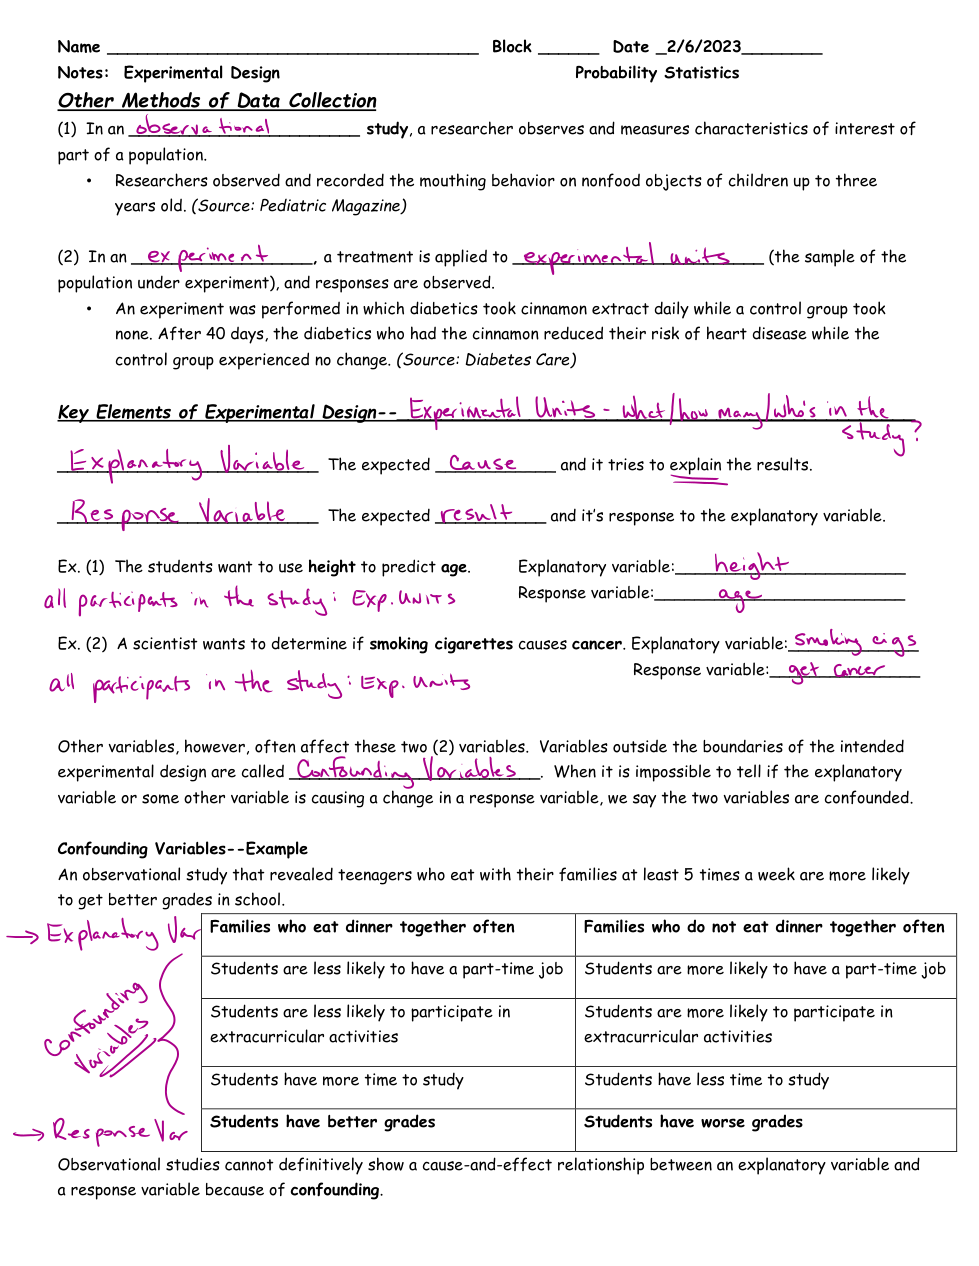 Name ______________________ Block ______ Date _2/6/2023________
Notes: Experimental Design Probability Statistics
Other Methods of Data Collection
(1) In an observational study, a researcher observes and measures characteristics of interest of
part of a population.
• Researchers observed and recorded the mouthing behavior on nonfood objects of children up to three
years old. (Source: Pediatric Magazine)
(2) In an experiment, a treatment is applied to experimental units (the sample of the
population under experiment), and responses are observed.
• An experiment was performed in which diabetics took cinnamon extract daily while a control group took
none. After 40 days, the diabetics who had the cinnamon reduced their risk of heart disease while the
control group experienced no change. (Source: Diabetes Care)
Key Elements of Experimental Design-- Experimental Units - What/how many/who's in the
study?
Explanatory Variable The expected cause and it tries to explain the results.
Response Variable The expected result and it's response to the explanatory variable.
Ex. (1) The students want to use height to predict age. Explanatory variable: height
all participants in the study: Exp. UNITS Response variable: age
Ex. (2) A scientist wants to determine if smoking cigarettes causes cancer. Explanatory variable: smoking cigs
all participants in the study: Exp. Units Response variable: get cancer
Other variables, however, often affect these two (2) variables. Variables outside the boundaries of the intended
experimental design are called Confounding Variables. When it is impossible to tell if the explanatory
variable or some other variable is causing a change in a response variable, we say the two variables are confounded.
Confounding Variables--Example
An observational study that revealed teenagers who eat with their families at least 5 times a week are more likely
to get better grades in school.
→ Explanatory Var Families who eat dinner together often Families who do not eat dinner together often
Students are less likely to have a part-time job Students are more likely to have a part-time job
Confounding
Variables
Students are less likely to participate in Students are more likely to participate in
extracurricular activities extracurricular activities
Students have more time to study Students have less time to study
→ Response Var Students have better grades Students have worse grades
Observational studies cannot definitively show a cause-and-effect relationship between an explanatory variable and
a response variable because of confounding.